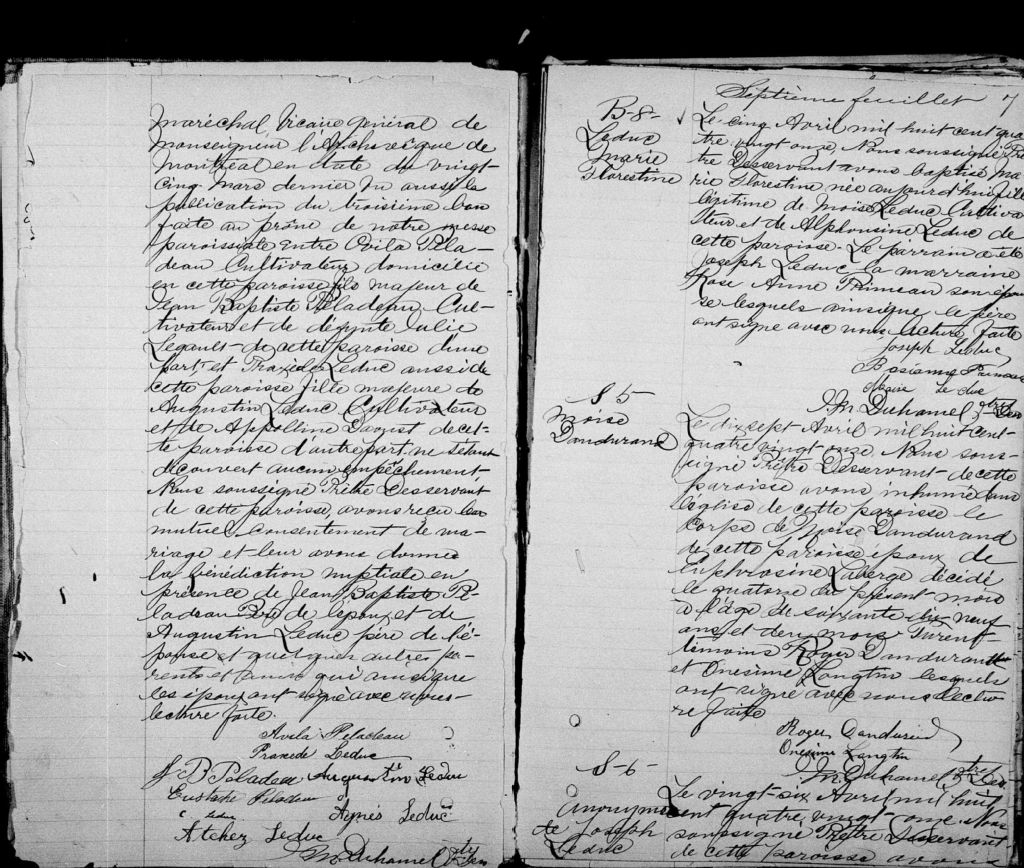 maréchal, Vicaire Général de
Monseigneur l'Archevêque de
Montréal en date du vingt-
cinq mars dernier Vu aussi la
publication du troisième ban
faite au prône de notre messe
paroissiale entre Ovila Péla-
deau Cultivateur domicilié
en cette paroisse fils majeur de
Jean Baptiste Péladeau Cul-
tivateur et de défunte Julie
Legault de cette paroisse d'une
part et Praxède Leduc aussi de
cette paroisse fille majeure de
Augustin Leduc Cultivateur
et de Appolline de cet-
te paroisse d'autre part, ne s'étant
découvert aucun empêchement,
Nous soussigné Prêtre Desservant
de cette paroisse, avons reçu leur
mutuel consentement de ma-
riage et leur avons donné
la bénédiction nuptiale en
présence de Jean Baptiste Pé-
ladeau Père de l'époux et de
Augustin Leduc père de l'é-
pouse et quelques autres pa-
rents et amis qui ainsi que
les époux ont signé avec nous
lecture faite.
Avila Peladeau
Praxede Leduc
J B Peladeau Augustin Leduc
Eustache Peladeau
Agnès Leduc
Leduc
Leduc
Duhamel Ptre Des
Septième feuillet 7
B-8-
Leduc
marie
Florestine
Le cinq Avril mil huit cent qua
tre vingt onze, Nous soussigné Prê
tre Desservant avons baptisé Ma
rie Florestine née aujourd'hui fille
légitime de Moïse Leduc Cultiva
teur et de Alphonsine Leduc de
cette paroisse. Le parrain a été
Joseph Leduc la marraine
Rose Anne Primeau son épou
se lesquels ainsi que le père
ont signé avec nous lecture faite
Joseph Leduc
Rosianne Primeau
Leduc
Duhamel ptre Des
S 5
Moïse
Dandurand
Le dix sept Avril mil huit cent-
quatre vingt onze Nous sous-
signé Prêtre Desservant de cette
paroisse avons inhumé dans
l'église de cette paroisse le
Corps de Moïse Dandurand
de cette paroisse époux de
Euphrosine Laberge décédé
le quatorze du présent mois
à l'âge de soixante dix neuf
ans et deux mois Furent
témoins Roger Dandurand
et Onésime Langtin lesquels
ont signé avec nous lectu
re faite
Roger Dandurand
Onésime Langtin
Duhamel Ptre Des
S-6-
Anonyme
de Joseph
Leduc
Le vingt-six Avril mil huit
cent quatre vingt-onze Nous
soussigné Prêtre Desservant
de cette paroisse avons